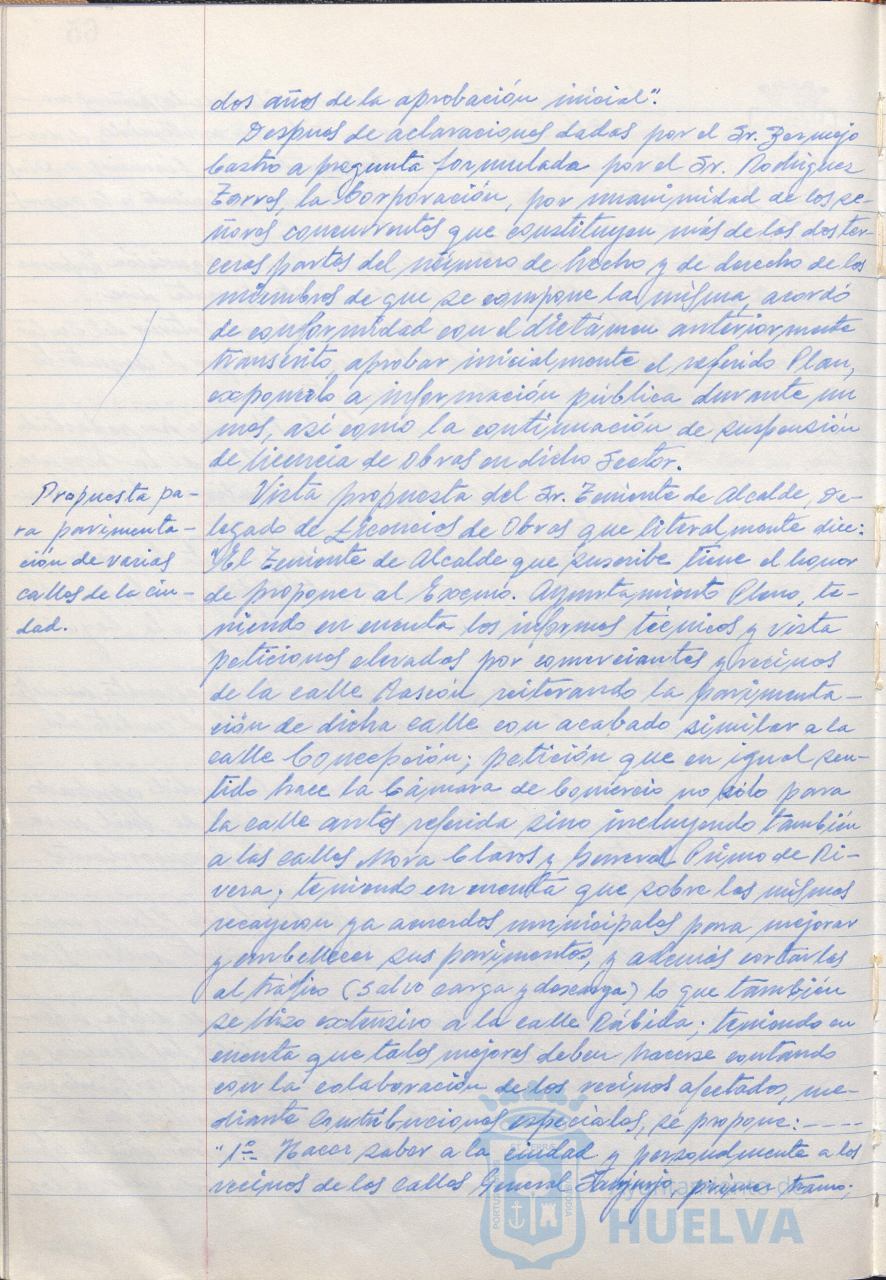 dos años de la aprobación inicial".
Despues de aclaraciones dadas por el Sr. Bermejo
Castro a pregunta formulada por el Sr. Rodriguez
Torres, la Corporación, por unanimidad de los se-
ñores concurrentes que constituyen más de las dos ter-
ceras partes del número de hecho y de derecho de los
miembros de que se compone la misma, acordó
de conformidad con el dictámen anteriormente
transcrito, aprobar inicialmente el referido Plan,
exponerlo a información pública durante un
mes, así como la continuación de suspensión
de licencia de obras en dicho Sector.
Propuesta pa-
ra pavimenta-
ción de varias
calles de la ciu-
dad.
Vista propuesta del Sr. Teniente de Alcalde, De-
legado de Licencias de Obras que literalmente dice:
"El Teniente de Alcalde que suscribe tiene el honor
de proponer al Excmo. Ayuntamiento Pleno, te-
niendo en cuenta los informes técnicos y vista
peticiones elevadas por comerciantes y vecinos
de la calle Rascón reiterando la pavimenta-
ción de dicha calle con acabado similar a la
calle Concepción; petición que en igual sen-
tido hace la Cámara de Comercio no sólo para
la calle antes referida sino incluyendo también
a las calles Mora Claros y General Primo de Ri-
vera; teniendo en cuenta que sobre las mismas
recayeron ya acuerdos municipales para mejorar
y embellecer sus pavimentos, y además cortarlas
al tráfico (salvo carga y descarga) lo que también
se hizo extensivo a la calle Rábida; teniendo en
cuenta que tales mejoras deben hacerse contando
con la colaboración de los vecinos afectados, me-
diante Contribuciones especiales, se propone: ----
"1º Hacer saber a la ciudad y personalmente a los
vecinos de las calles General Sanjurjo, primer tramo;
Ayuntamiento de
HUELVA